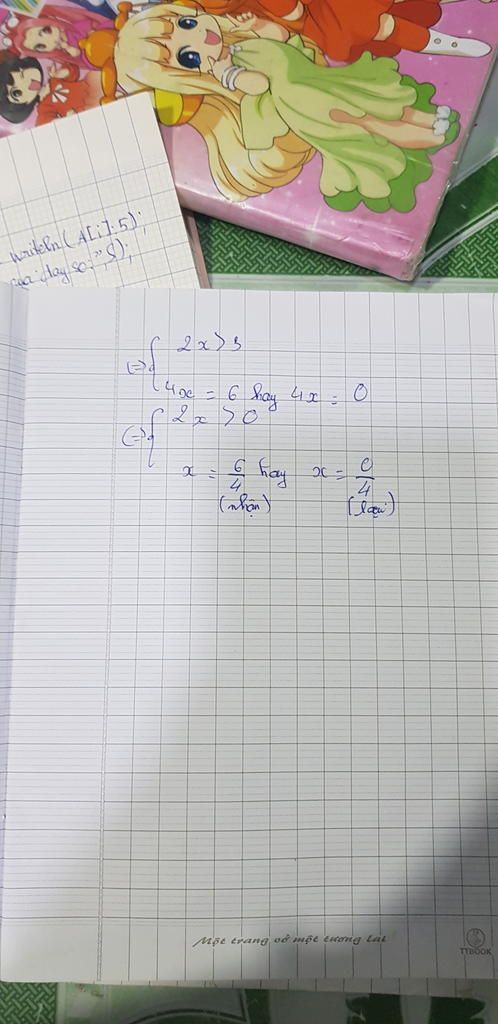 writeln(A[i]:5);
dãy so:",S);
(=) { 2x > 3
4x = 6 hay 4x = 0
(=) { 2x > 0
x = 6/4 hay x = 0/4
(nhận) (loại)
Một trang vở một tương lai
TTBOOK